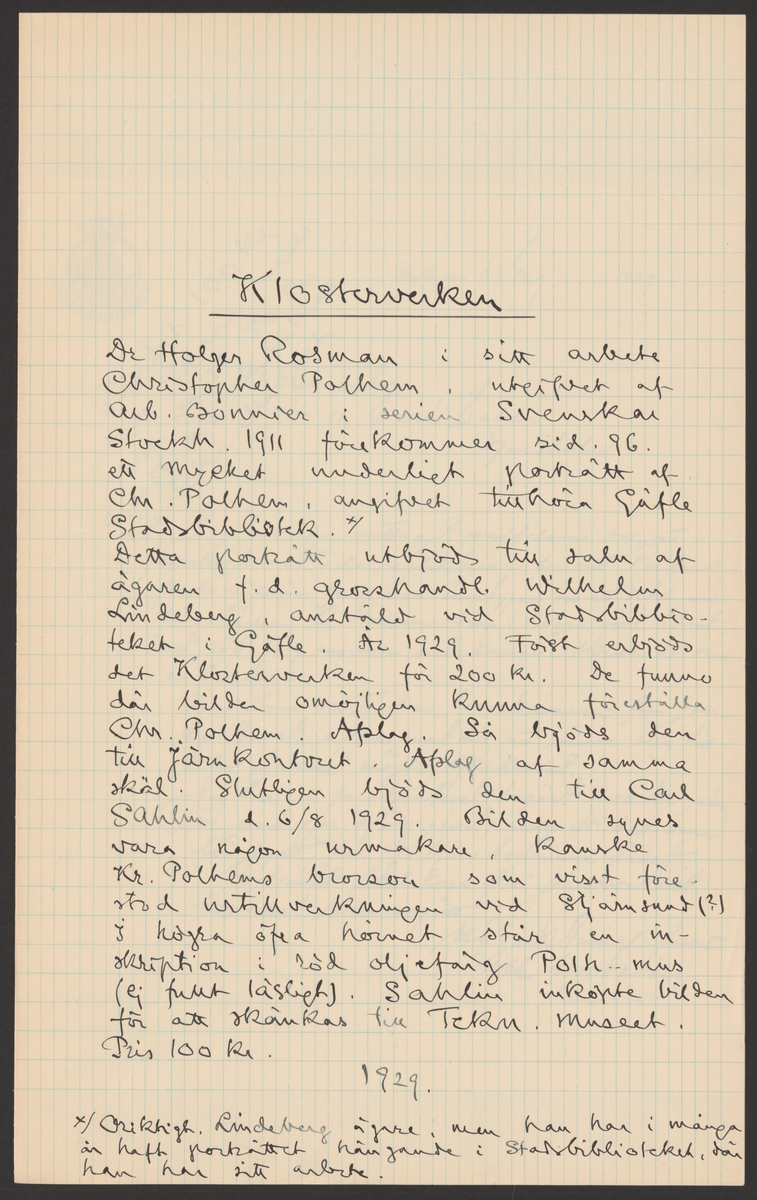 Klosterverken
Dr Holger Rosman i sitt arbete
Christopher Polhem, utgifvet af
Alb. Bonnier i serien Svenskar
Stockh. 1911 förekommer sid. 96.
ett mycket underligt porträtt af
Chr. Polhem, angifvet tillhöra Gäfle
Stadsbibliotek. x/
Detta porträtt utbjöds till salu af
ägaren f.d. grosshandl. Wilhelm
Lindeberg, anstäld vid Stadsbiblio-
teket i Gäfle. År 1929. Först erbjöds
det Klosterverken för 200 kr. De funno
där bilden omöjligen kunna föreställa
Chr. Polhem. Afslag. Så bjöds den
till Järnkontoret. Afslag af samma
skäl. Slutligen bjöds den till Carl
Sahlin d. 6/8 1929. Bilden synes
vara någon urmakare, kanske
Kr. Polhems brorson som visst före-
stod urtillverkningen vid Stjärnsund (?)
I högra öfra hörnet står en in-
skription i röd oljefärg Polh--mus
(ej fullt läsligt). Sahlin inköpte bilden
för att skänkas till Tekn. Museet.
Pris 100 kr.
1929.
x/ Oriktigt. Lindeberg ägare, men han har i många
år haft porträttet hängande i Stadsbiblioteket, där
han har sitt arbete.